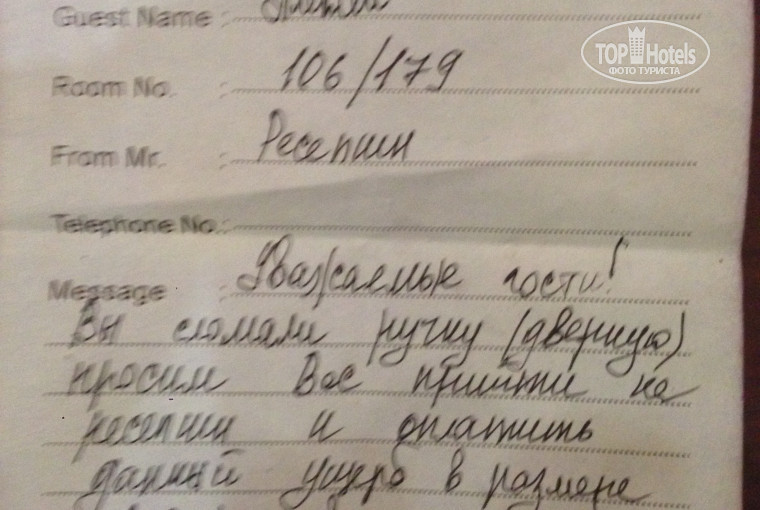 Guest Name :
TOP Hotels
ФОТО ТУРИСТА
Room No. : 106/179
From Mr. : Ресепшн
Telephone No. :
Message : Уважаемые гости!
Вы сломали ручку (дверную)
просим Вас прийти на
ресепшн и оплатить
данный ущерб в размере